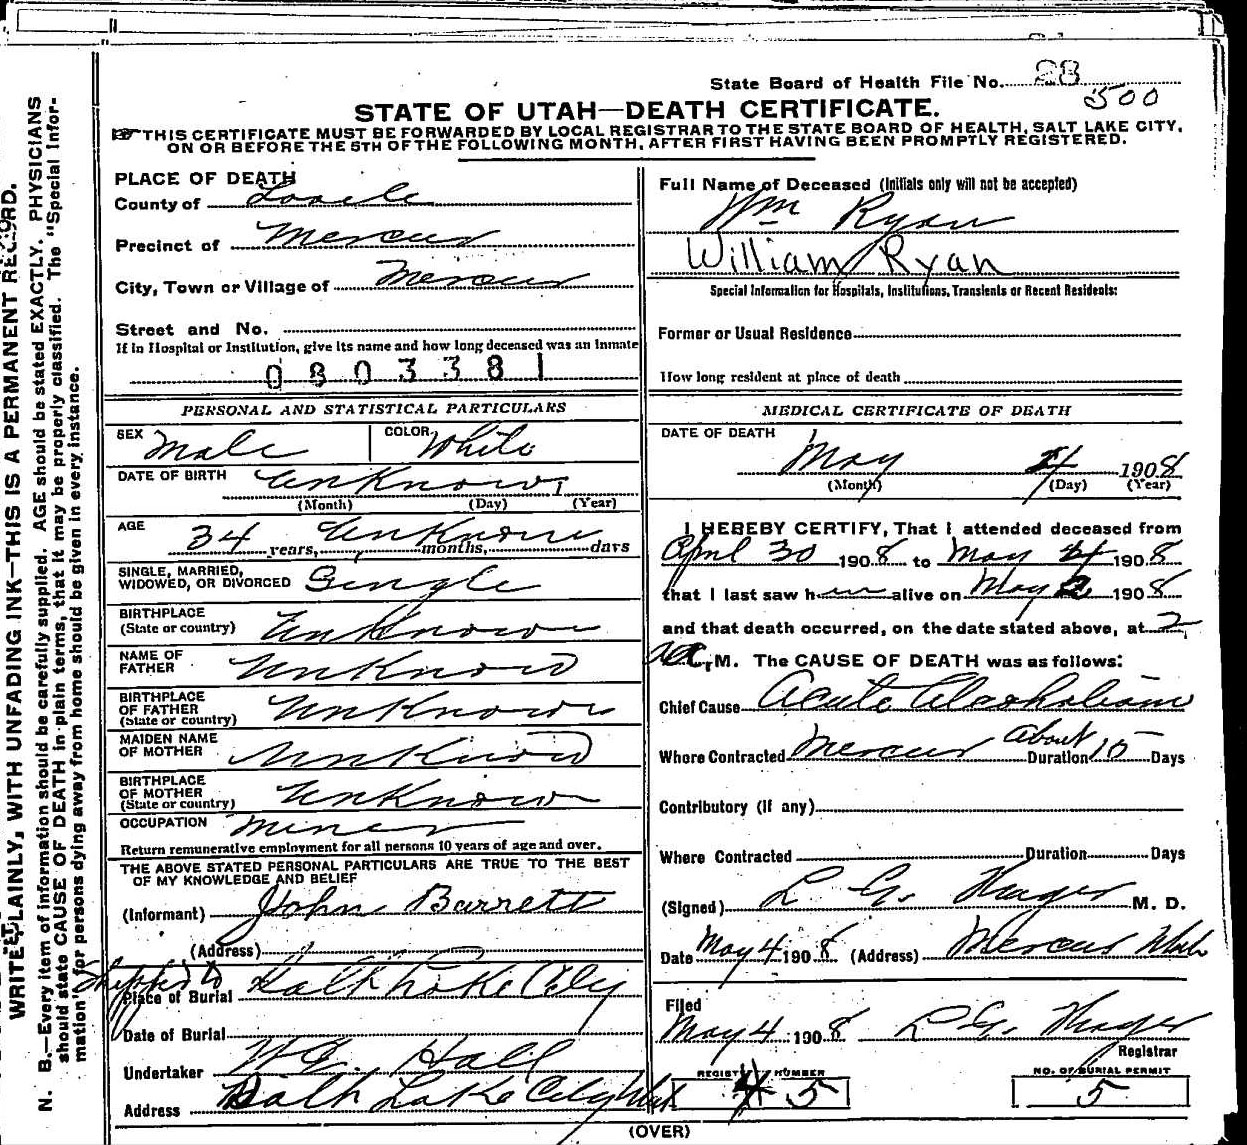 State Board of Health File No. 28
500
STATE OF UTAH—DEATH CERTIFICATE.
THIS CERTIFICATE MUST BE FORWARDED BY LOCAL REGISTRAR TO THE STATE BOARD OF HEALTH, SALT LAKE CITY,
ON OR BEFORE THE 5TH OF THE FOLLOWING MONTH, AFTER FIRST HAVING BEEN PROMPTLY REGISTERED.
WRITE PLAINLY, WITH UNFADING INK—THIS IS A PERMANENT RECORD.
N. B.—Every item of information should be carefully supplied. AGE should be stated EXACTLY. PHYSICIANS
should state CAUSE OF DEATH in plain terms, that it may be properly classified. The "Special Infor-
mation" for persons dying away from home should be given in every instance.
PLACE OF DEATH
County of Tooele
Precinct of Mercur
City, Town or Village of Mercur
Street and No.
If in Hospital or Institution, give its name and how long deceased was an inmate
0803381
PERSONAL AND STATISTICAL PARTICULARS
SEX Male COLOR White
DATE OF BIRTH Unknown
(Month) (Day) (Year)
AGE 34 years, Unknown months, days
SINGLE, MARRIED,
WIDOWED, OR DIVORCED Single
BIRTHPLACE
(State or country) Unknown
NAME OF
FATHER Unknown
BIRTHPLACE
OF FATHER
(State or country) Unknown
MAIDEN NAME
OF MOTHER Unknown
BIRTHPLACE
OF MOTHER
(State or country) Unknown
OCCUPATION Miner
Return remunerative employment for all persons 10 years of age and over.
THE ABOVE STATED PERSONAL PARTICULARS ARE TRUE TO THE BEST
OF MY KNOWLEDGE AND BELIEF
(Informant) John Barrett
(Address)
Shipped to
Place of Burial Salt Lake City
Date of Burial
Undertaker Hall
Address Salt Lake City Utah
Full Name of Deceased (Initials only will not be accepted)
Wm Ryan
William Ryan
Special Information for Hospitals, Institutions, Transients or Recent Residents:
Former or Usual Residence
How long resident at place of death
MEDICAL CERTIFICATE OF DEATH
DATE OF DEATH
May 4 1908
(Month) (Day) (Year)
I HEREBY CERTIFY, That I attended deceased from
April 30 1908 to May 4 1908
that I last saw him alive on May 2 1908
and that death occurred, on the date stated above, at 2
A.M. The CAUSE OF DEATH was as follows:
Chief Cause Acute Alcoholism
Where Contracted Mercur About Duration 15 Days
Contributory (if any)
Where Contracted Duration Days
(Signed) L. G. M. D.
Date May 4 1908 (Address) Mercur Utah
Filed
May 4 1908 L. G.
Registrar
REGISTER NUMBER
5
NO. OF BURIAL PERMIT
5
(OVER)